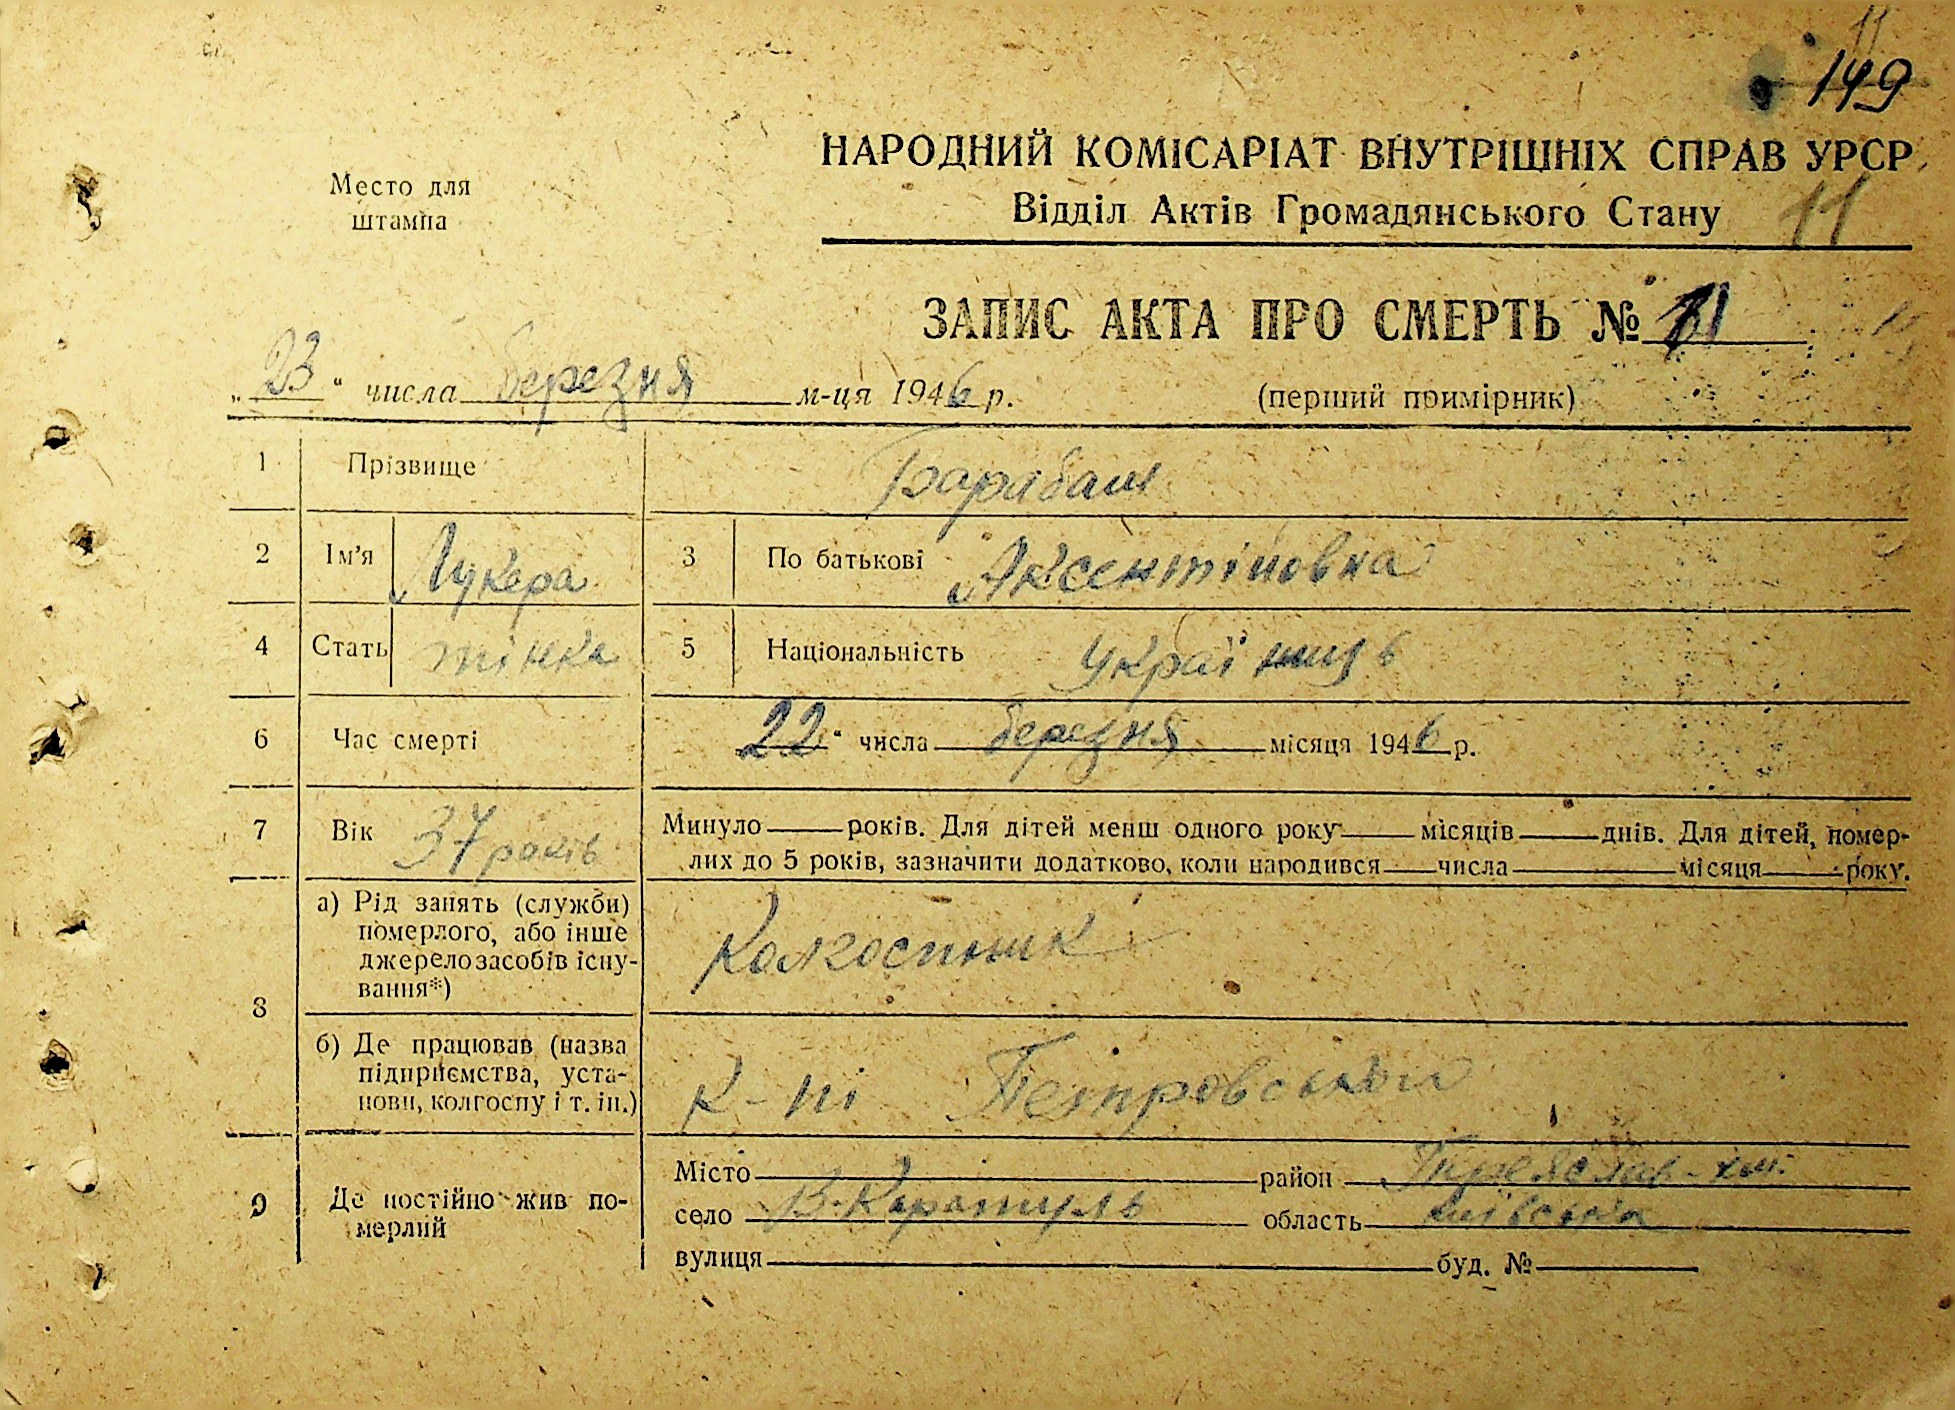 11
149
НАРОДНИЙ КОМІСАРІАТ ВНУТРІШНІХ СПРАВ УРСР
Место для штампа
Відділ Актів Громадянського Стану 11
ЗАПИС АКТА ПРО СМЕРТЬ № 11
„23“ числа березня м-ця 1946 р. (перший примірник)
1 Прізвище Барабаш
2 Ім'я Лукера 3 По батькові Аксентіновна
4 Стать жінка 5 Національність українць
6 Час смерті 22“ числа березня місяця 1946 р.
7 Вік 37 років Минуло років. Для дітей менш одного року місяців днів. Для дітей, помер-
лих до 5 років, зазначити додатково, коли народився числа місяця року.
8 а) Рід занять (служби)
померлого, або інше
джерело засобів існу-
вання*)
Колгоспник
б) Де працював (назва
підприємства, уста-
нови, колгоспу і т. ін.)
К-пі Петровського
9 Де постійно жив по-
мерлий
Місто район Переяслав-хм.
село В-Каратуль область Київська
вулиця буд. №